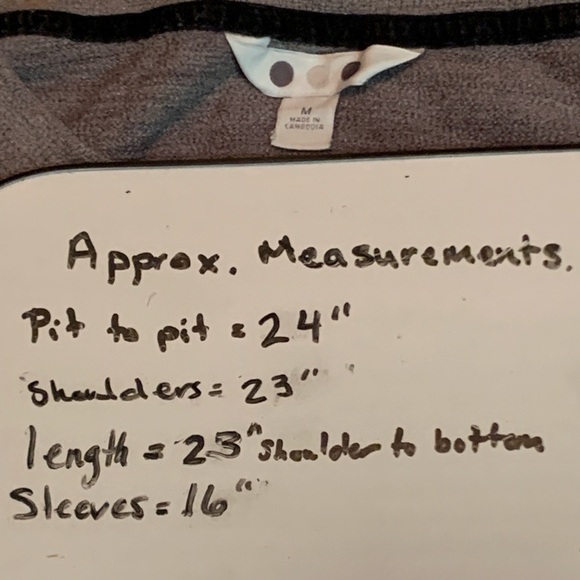 M
MADE IN
CAMBODIA
Approx. Measurements.
Pit to pit = 24"
Shoulders = 23"
length = 23" shoulder to bottom
Sleeves = 16"